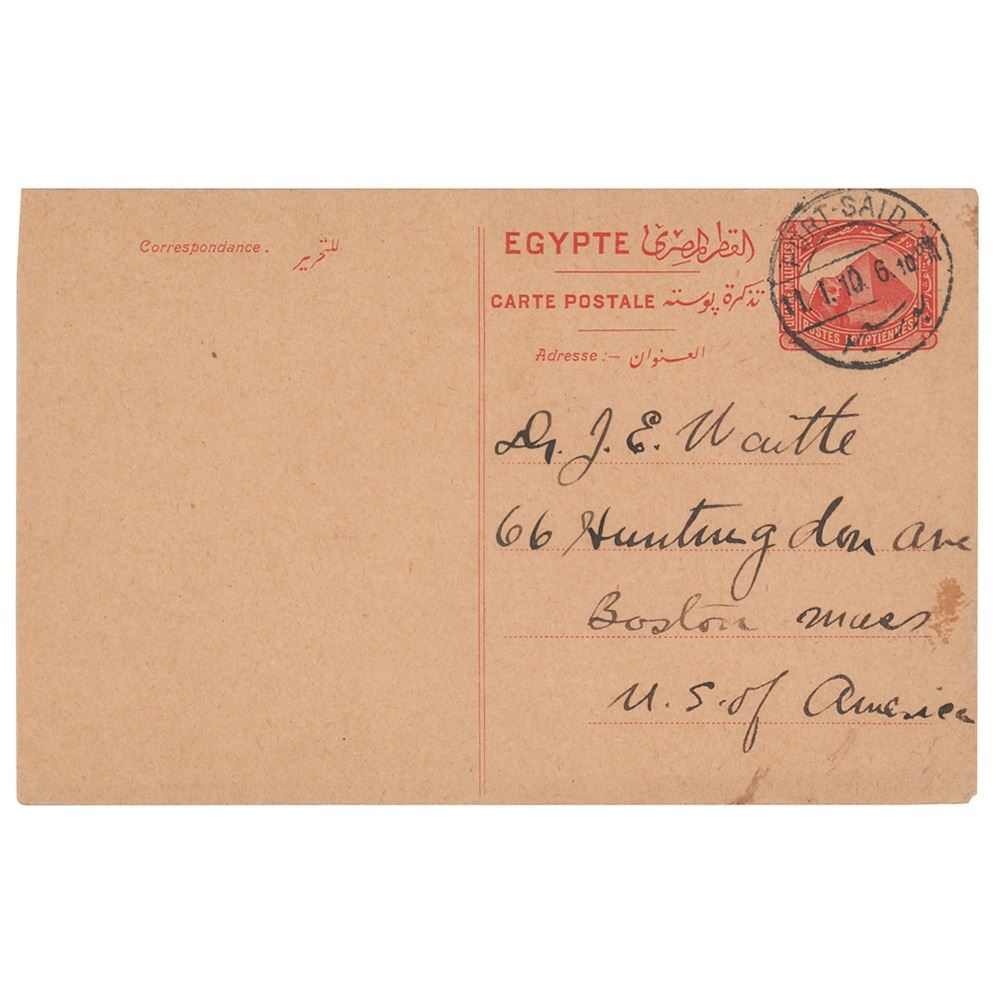 Correspondance. للتحرير
EGYPTE القطر المصرى
CARTE POSTALE تذكرة پوسته
Adresse :— العنوان
PORT-SAID
11.1.10. 6.10
POSTES EGYPTIENNES
Dr. J. E. Waitte
66 Huntingdon Ave
Boston Mass
U. S. of America